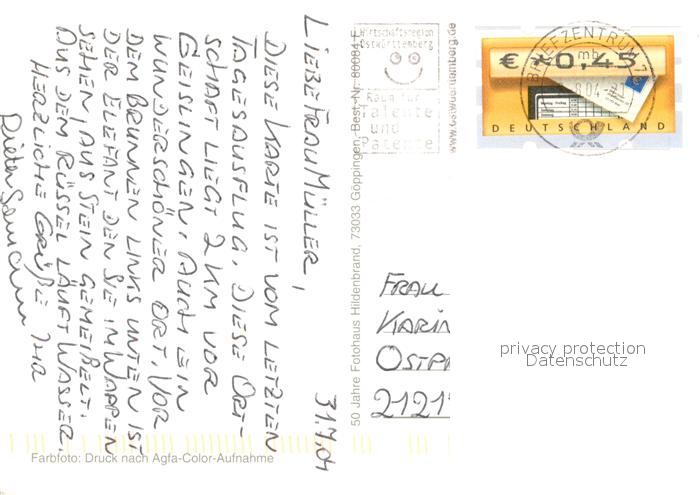 31.7.04
LIEBE FRAU MÜLLER,
DIESE KARTE IST VOM LETZTEN
TAGESAUSFLUG. DIESE ORT-
SCHAFT LIEGT 2 KM VOR
GEISLINGEN. AUCH EIN
WUNDERSCHÖNER ORT. VOR
DEM BRUNNEN LINKS UNTEN IST
DER ELEFANT DEN SIE IM WAPPEN
SEHEN, AUS STEIN GEMEIßELT.
AUS DEM RÜSSEL LÄUFT WASSER.
HERZLICHE GRÜßE IHR
Farbfoto: Druck nach Agfa-Color-Aufnahme
50 Jahre Fotohaus Hildenbrand, 73033 Göppingen, Best.-Nr. 80084-E
Wirtschaftsregion
Ostwürttemberg
Raum für
Talente
und
Patente
BRIEFZENTRUM
mb
€ *0,45
DEUTSCHLAND
FRAU
KARIN
OSTPR
2121
privacy protection
Datenschutz